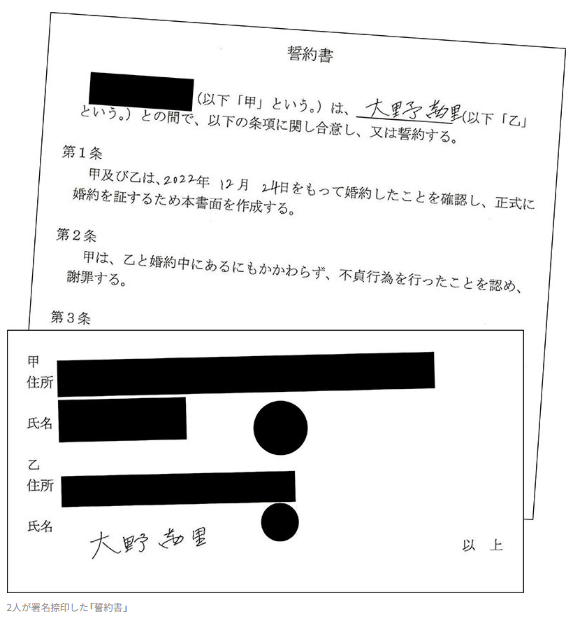 誓約書
(以下「甲」という。)は、大野尚里(以下「乙」
という。)との間で、以下の条項に関し合意し、又は誓約する。
第1条
甲及び乙は、2022年 12月 24日をもって婚約したことを確認し、正式に
婚約を証するため本書面を作成する。
第2条
甲は、乙と婚約中にあるにもかかわらず、不貞行為を行ったことを認め、
謝罪する。
第3条
甲
住所
氏名
乙
住所
氏名
大野尚里
以 上
2人が署名捺印した「誓約書」